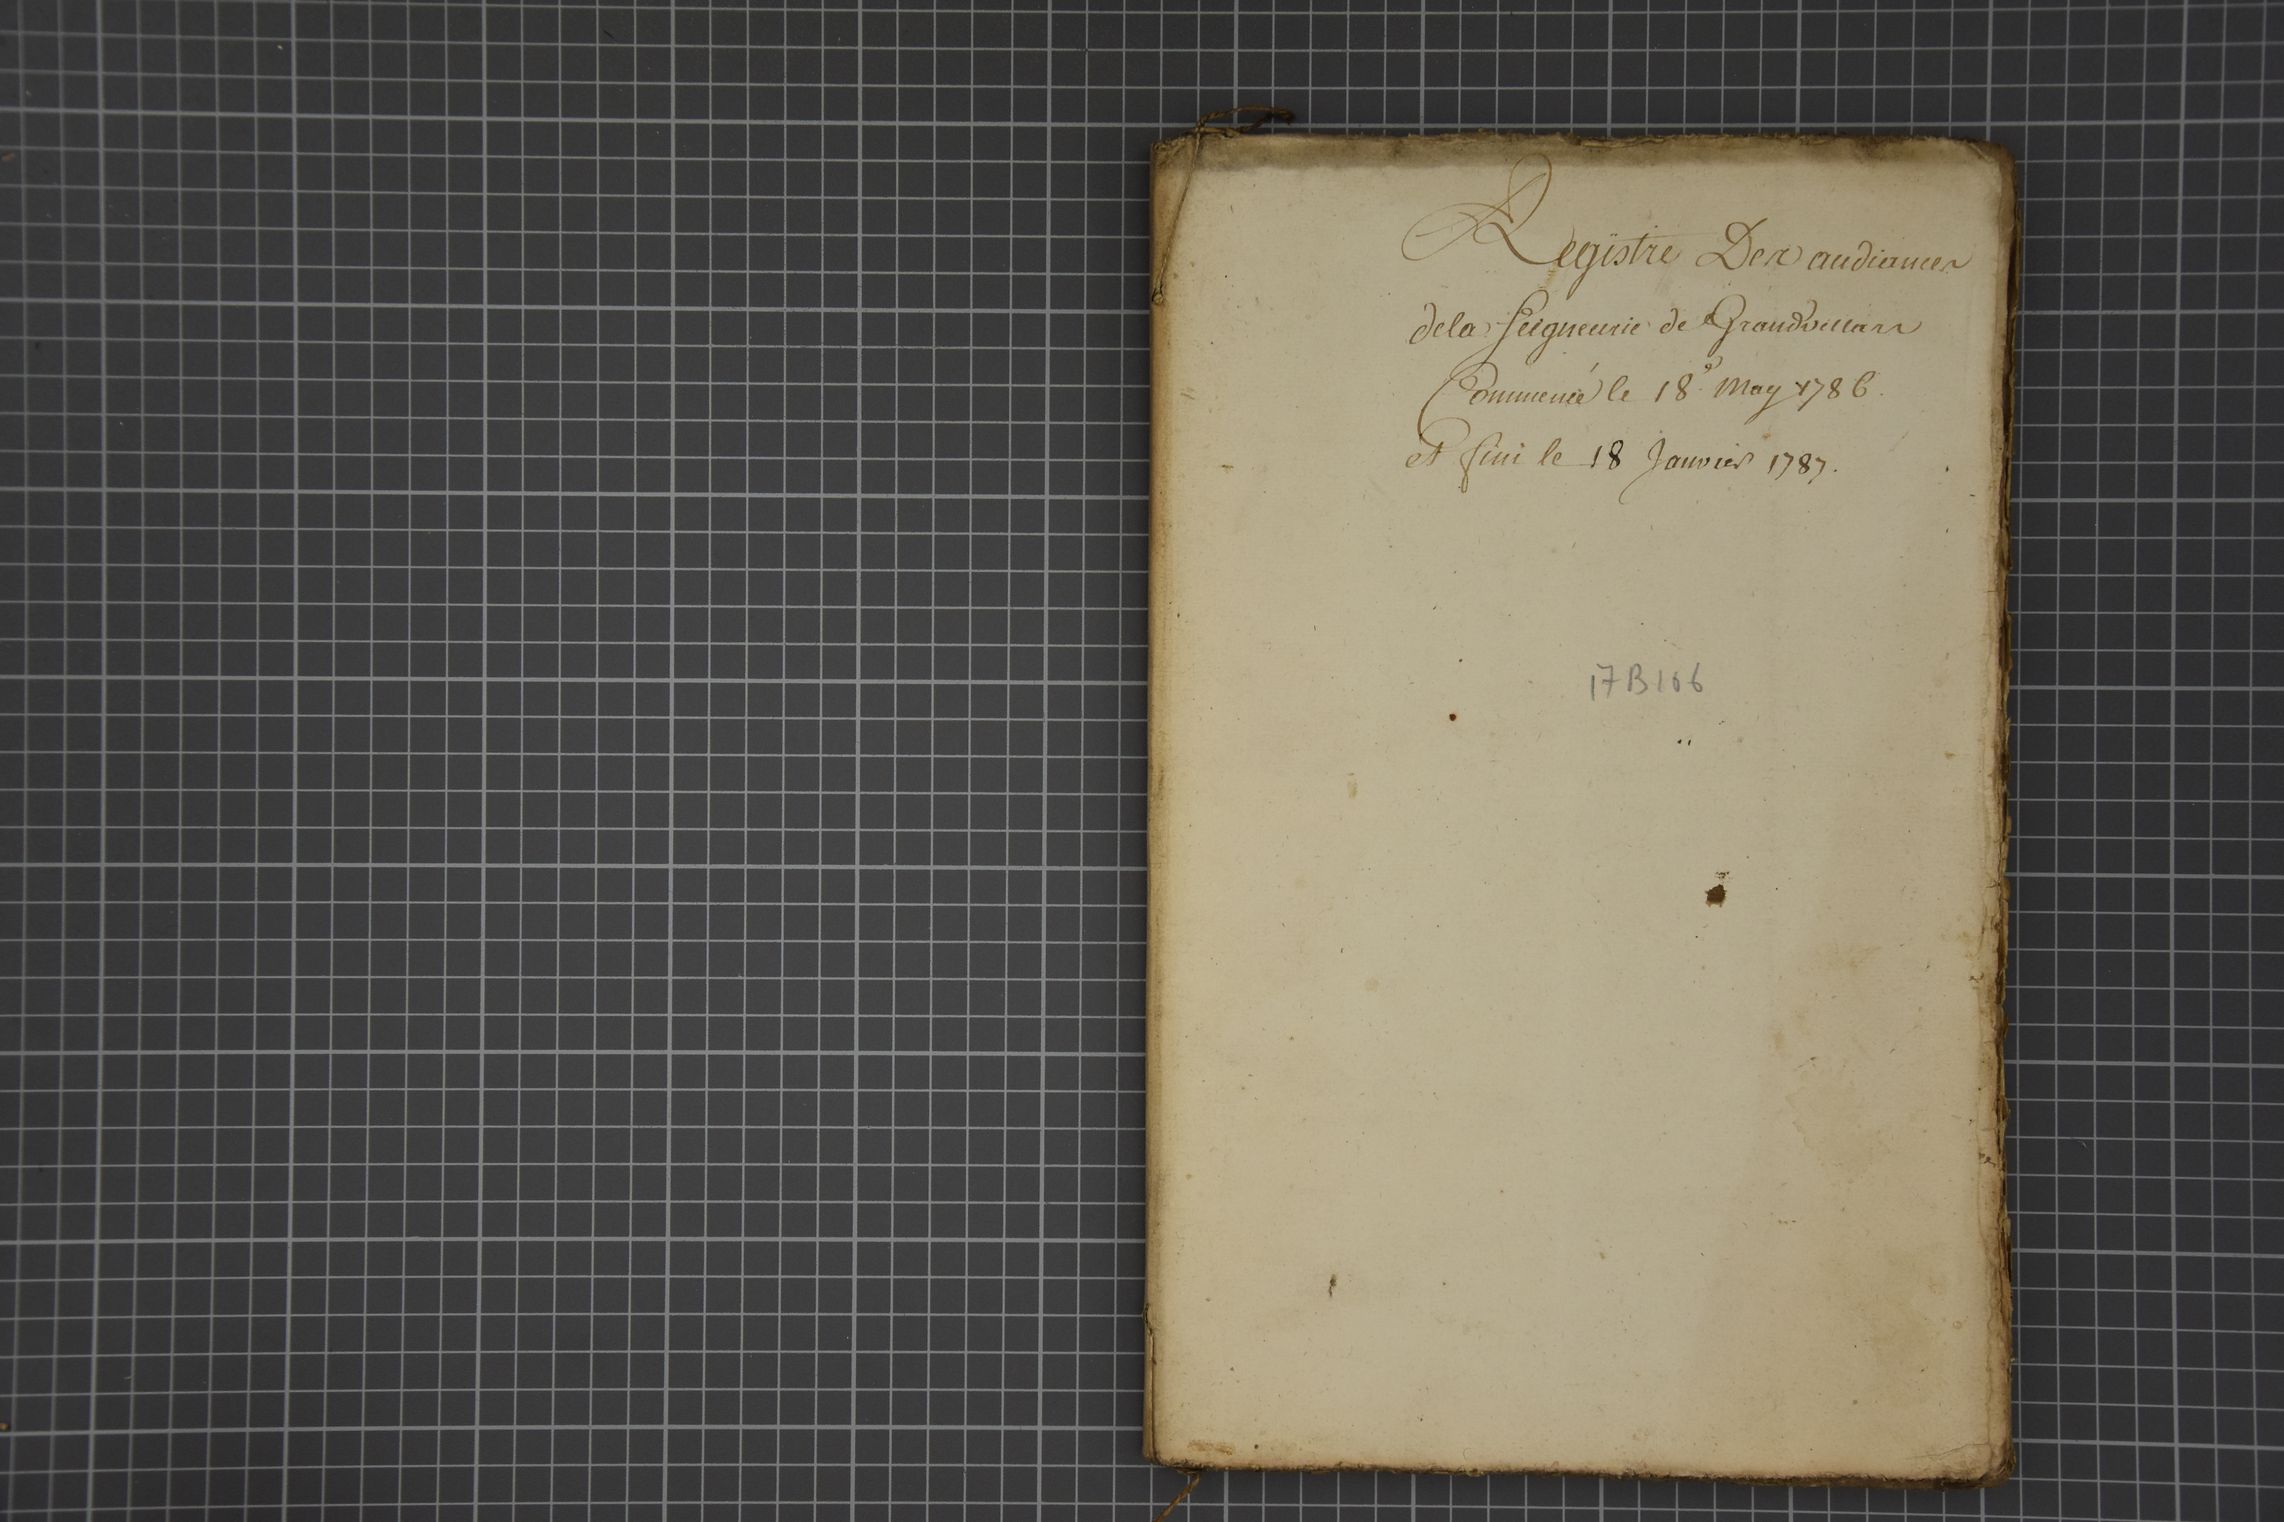 Registre Des audiances
dela Seigneurie de Grandvillars
Commencé le 18e May 1786.
et fini le 18 Janvier 1787.
17B106